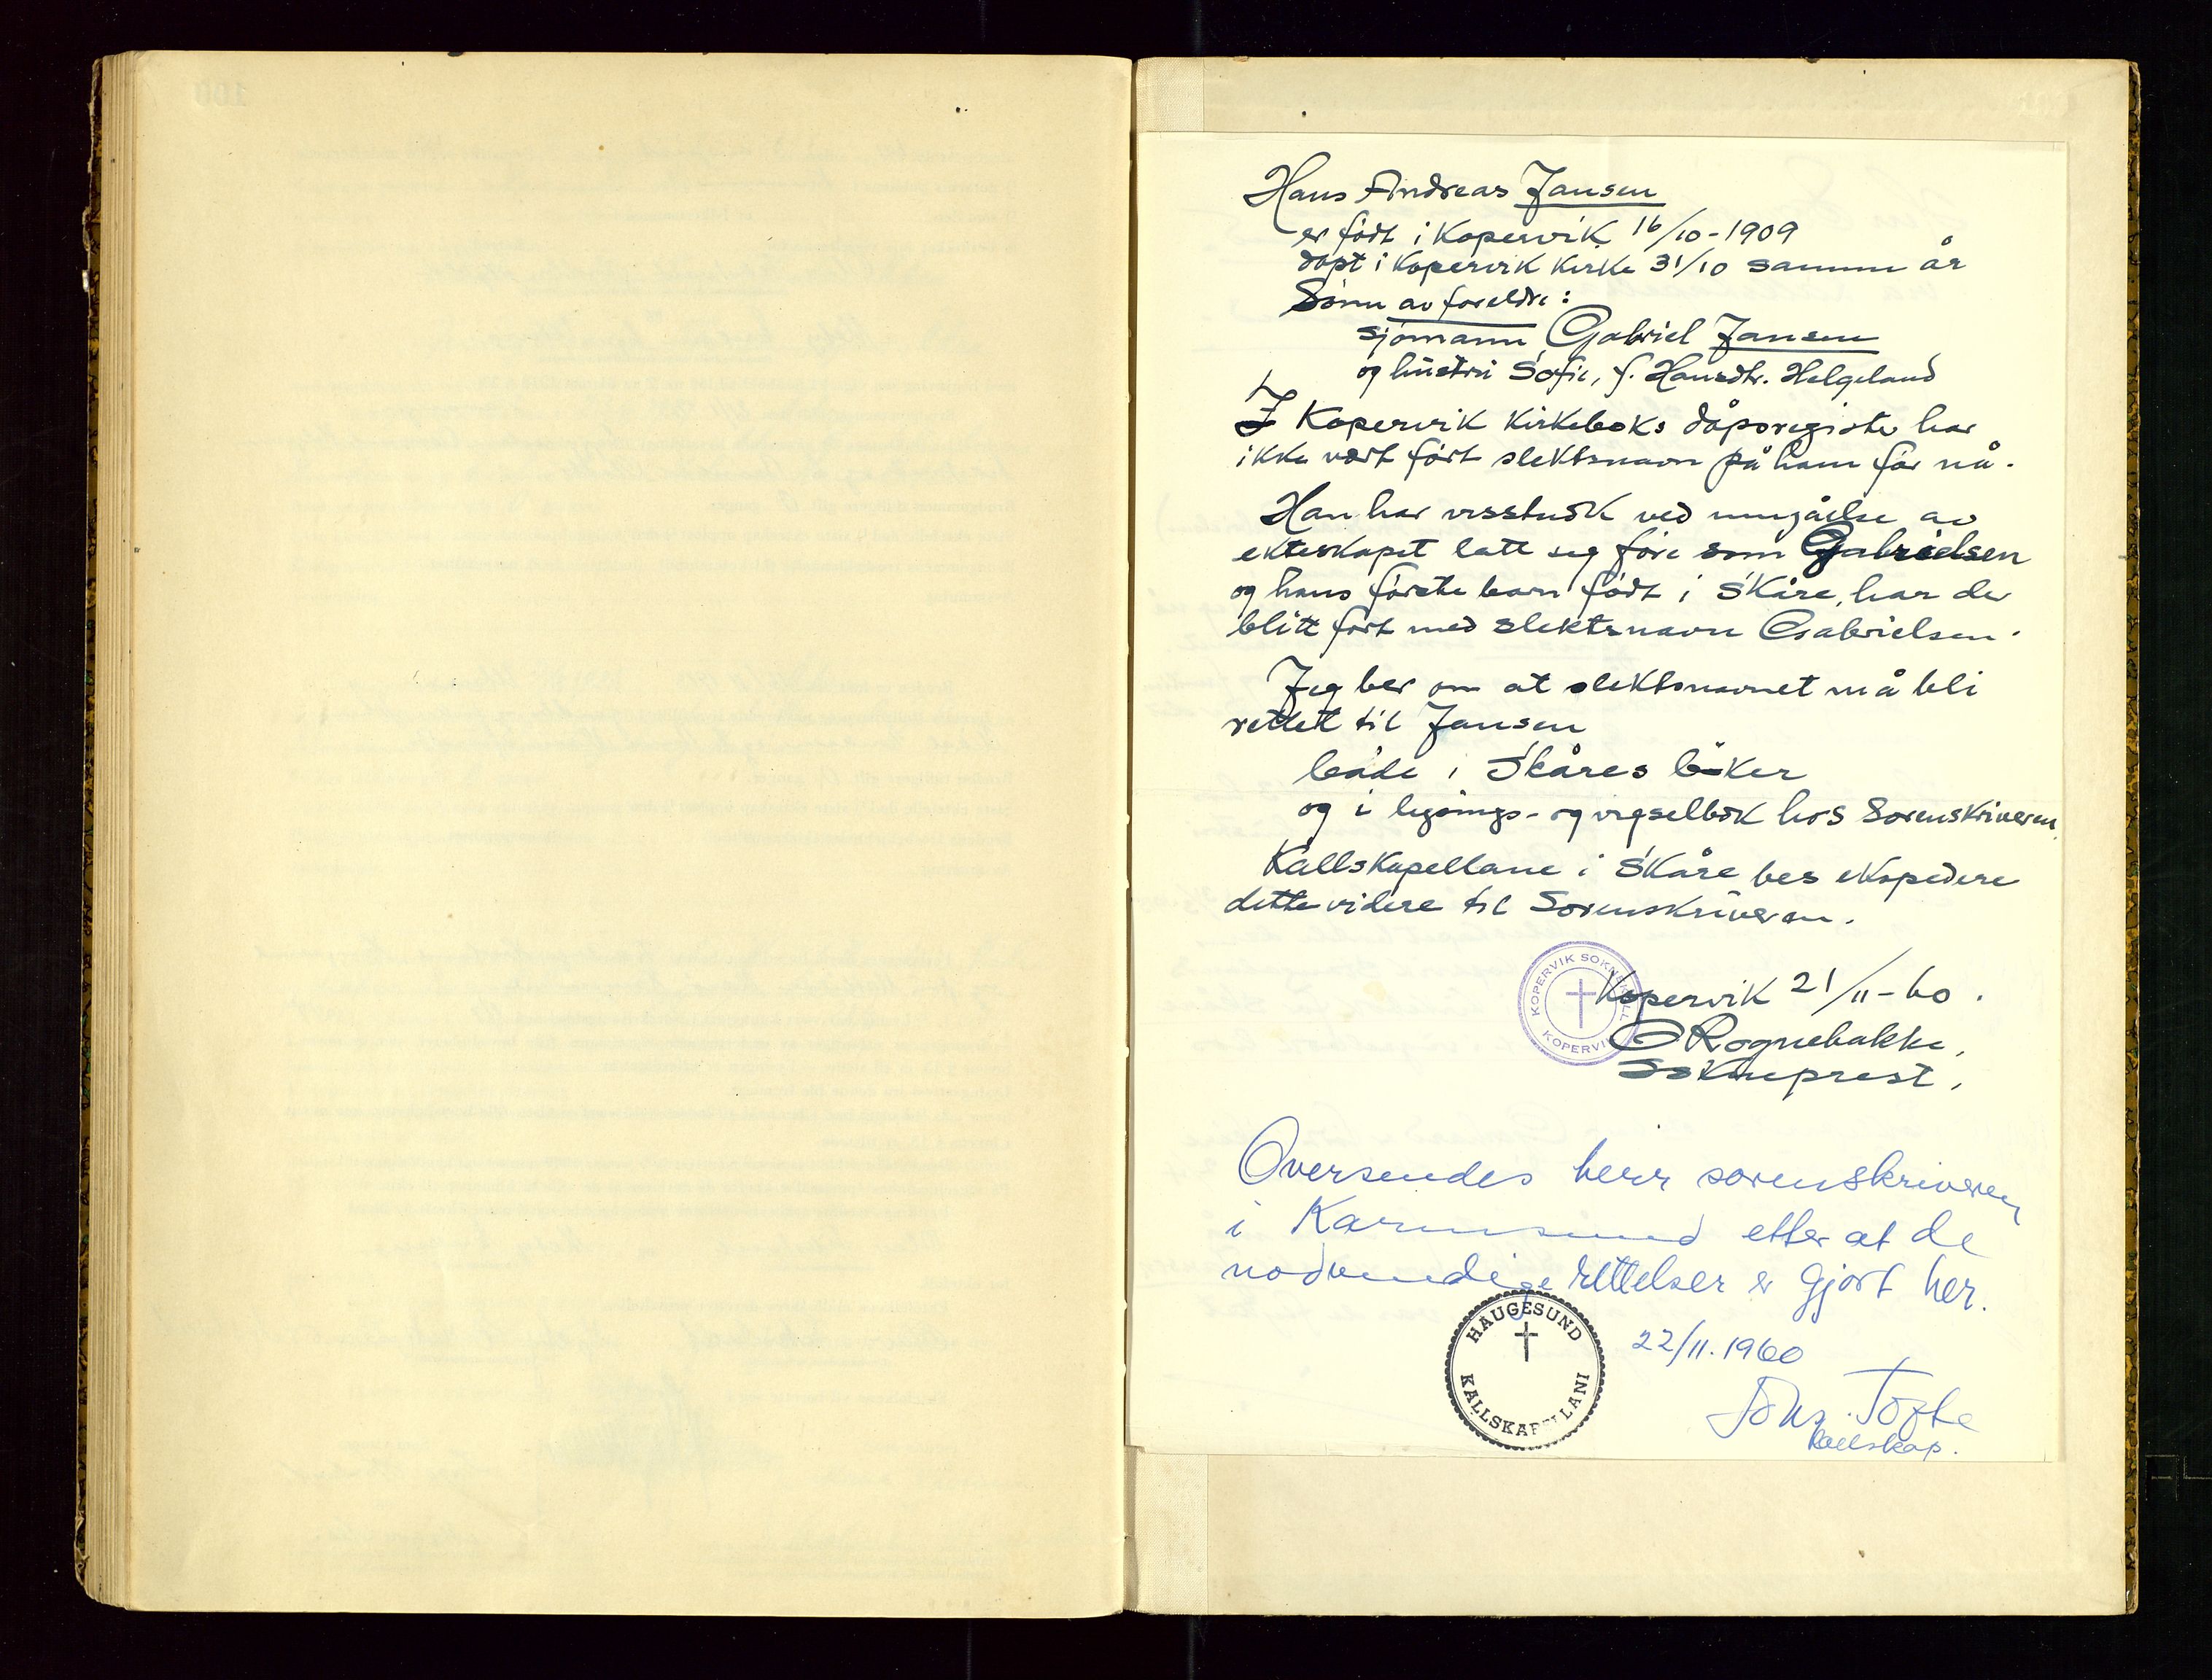 Hans Andreas Jansen
er födt i Kopervik 16/10-1909
döpt i Kopervik kirke 31/10 samme år
Sönn av foreldre:
sjömann Gabriel Jansen
og hustru Sofie, f. Hansdtr. Helgeland
I Kopervik kirkeboks dåpsregister har
ikke vært fört slektsnavn på ham för nå.
Han har visstnok ved inngåelse av
ekteskapet latt seg före som Gabrielsen
og hans förste barn födt i Skåre, har der
blitt fört med slektsnavn Gabrielsen.
Jeg ber om at slektsnavnet må bli
rettet til Jansen
både i Skåres böker
og i lysings- og vigselbok hos Sorenskriveren.
Kallskapellane i Skåre bes ekspedere
dette videre til Sorenskriveren.
KOPERVIK SOKNEKALL
KOPERVIK
Kopervik 21/11-60.
O Rognebakke,
Sokneprest,
Oversendes herr sorenskriveren
i Karmsund etter at de
nödvendige rettelser er gjort her.
HAUGESUND
KALLSKAPELLANI
22/11.1960
Johs. Tofte
kallskap.
100